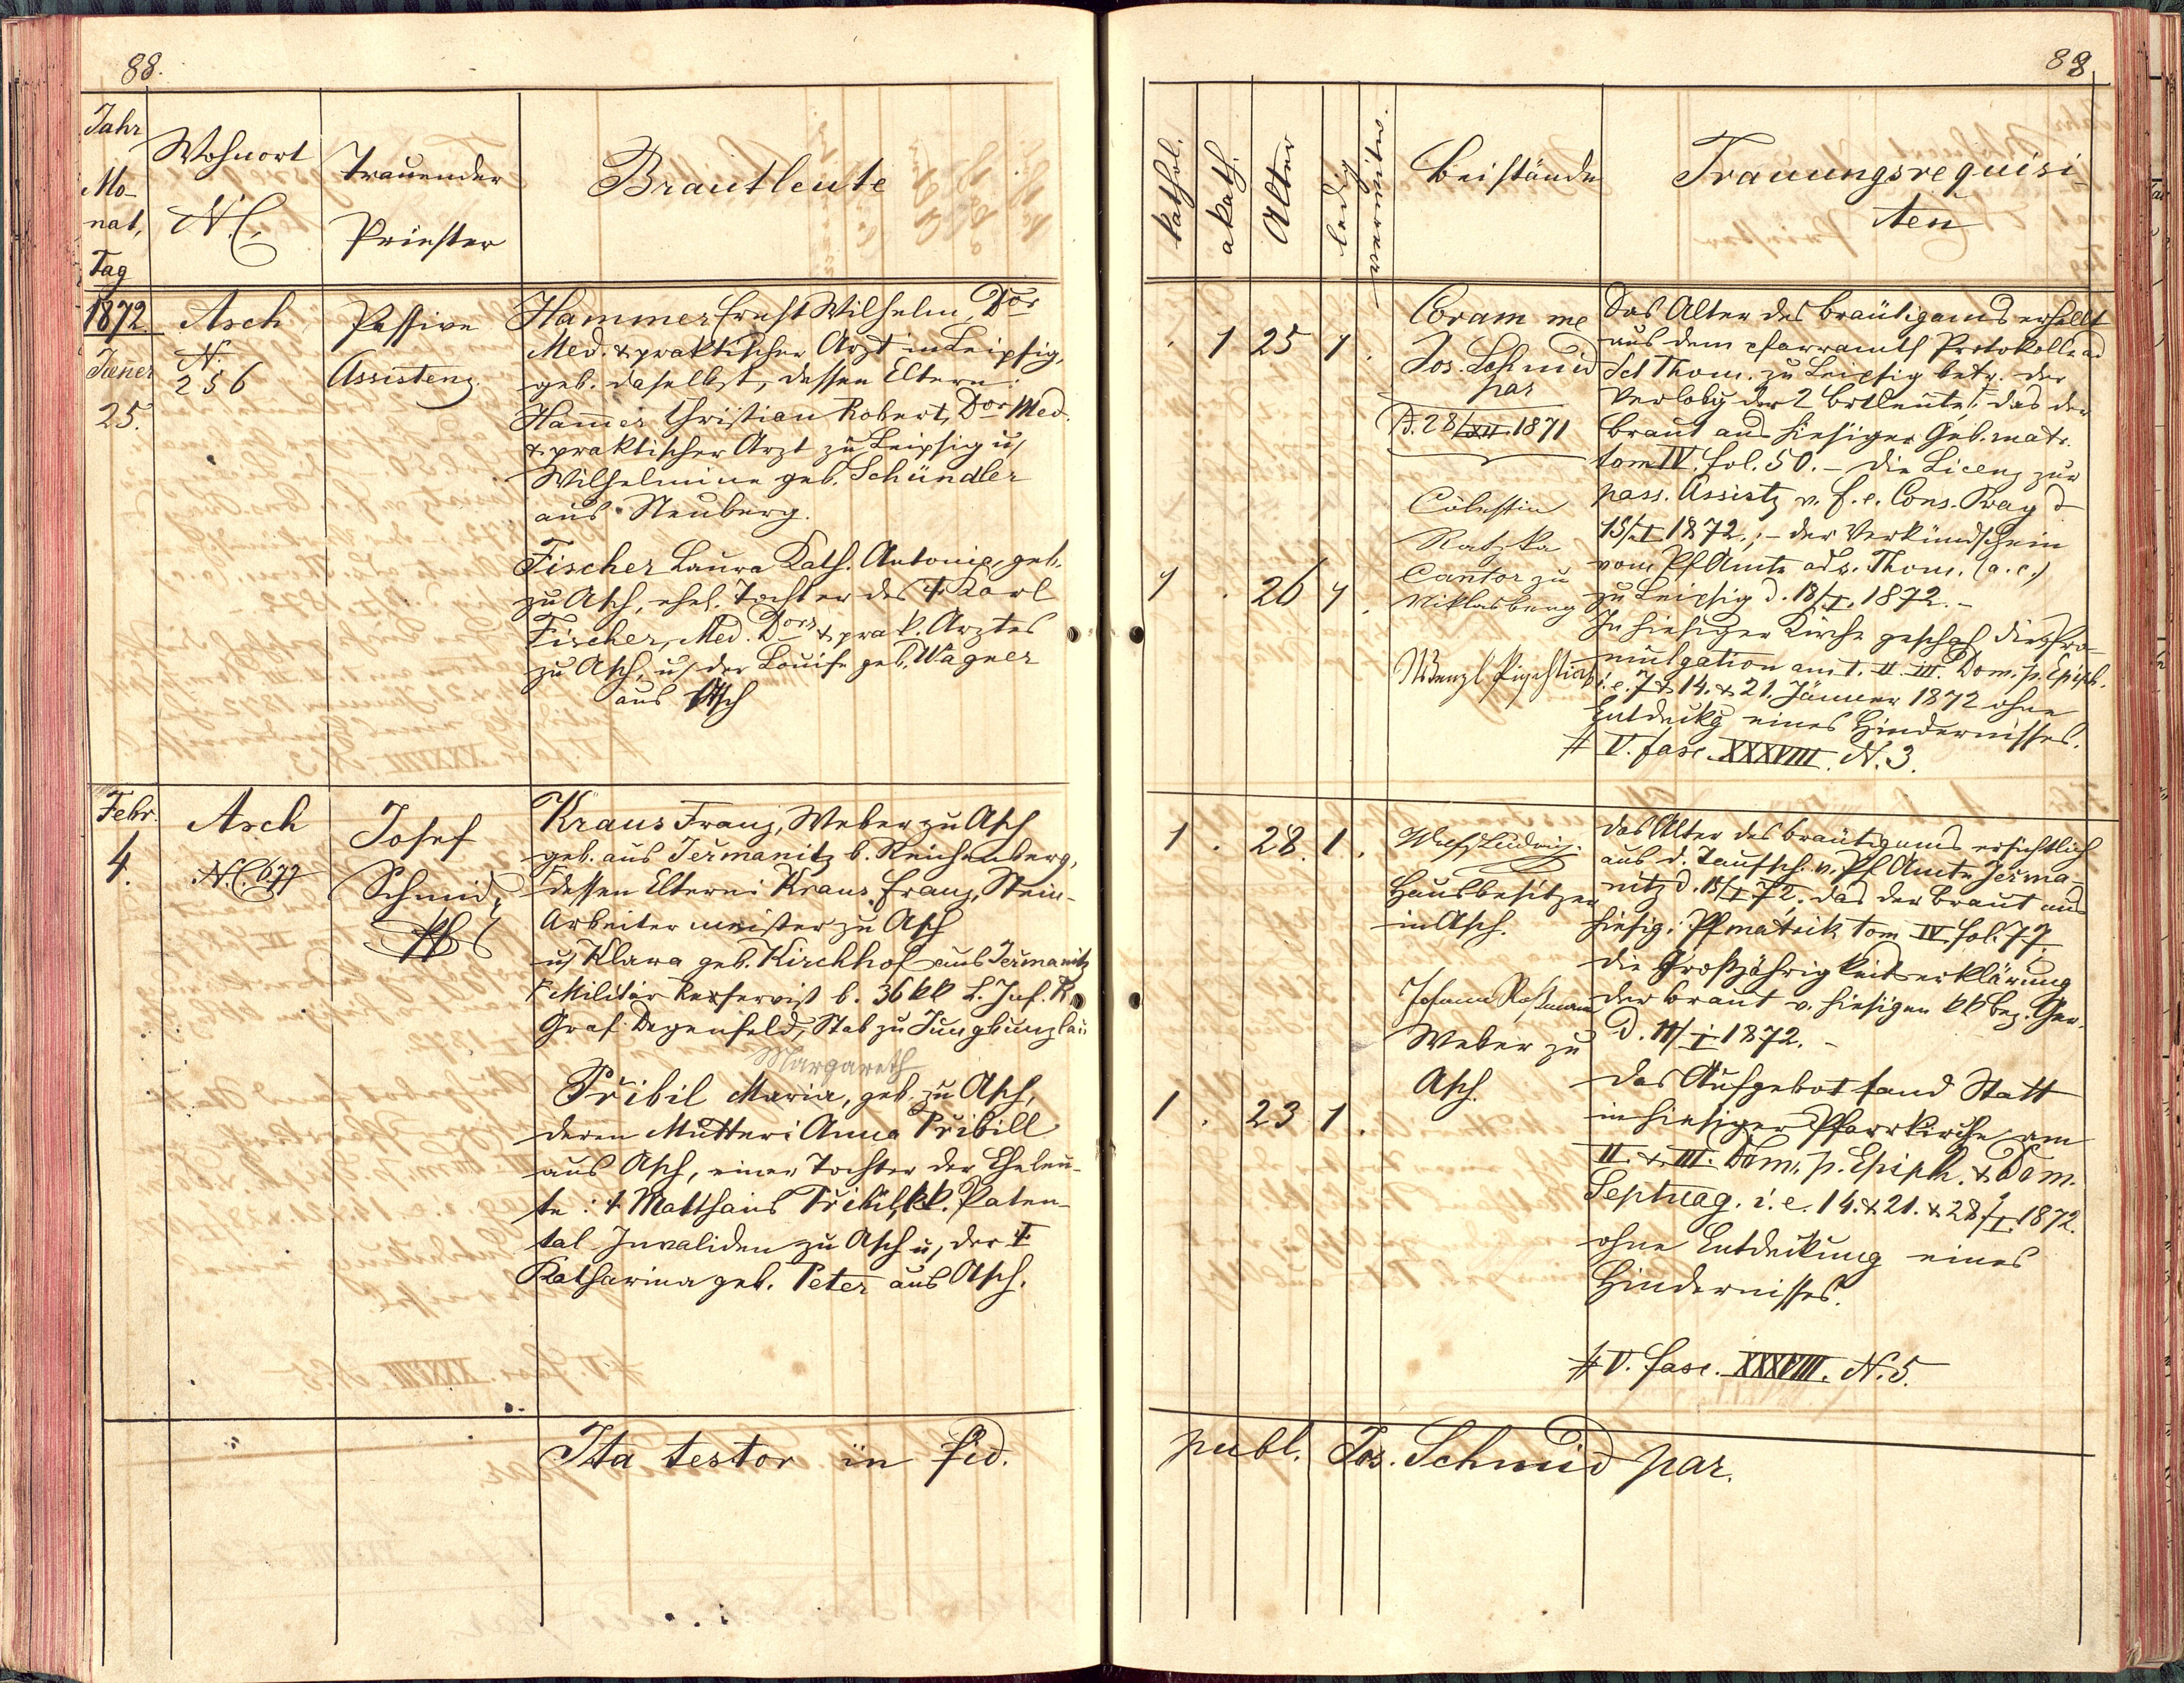 88.
Jahr
Mo-
nat,
Tag
Wohnort
N.C.
Trauender
Priester
Brautleute
1872
Jäner
25.
Asch
N.
256
Passive
Assistenz.
Hammer Ernst Wilhelm, Dor
Med. & praktischer Arzt in Leipzig,
geb. daselbst, dessen Eltern:
Hamer Christian Robert, Dor Med.
& praktischer Arzt zu Leipzig u,
Wilhelmine geb. Schündler
aus Neuberg.
Fischer Laura Kath. Antonie, geb.
zu Asch, ehel. Tochter des † Karl
Fischer, Med. Dors & prak. Arztes
zu Asch, u, der Louise geb. Wagner
aus Asch
Febr.
4.
Asch
N.C. 677
Josef
Schmid,
Pf
Kraus Franz, Weber zu Asch
geb. aus Jermanitz b. Reichenberg,
dessen Eltern: Kraus Franz, Stein-
Arbeiter meister zu Asch
u, Klara geb. Kirchhof aus Jermanitz
Militär Reservist b. 36 kk L. Inf. R.
Graf Degenfeld, Stab zu Jungbunzlau
Margareth
Pribil Maria, geb. zu Asch,
deren Mutter: Anna Pribill
aus Asch, einer Tochter der Eheleu-
te: † Matthäus Pribil, kk. Paten-
tal Invaliden zu Asch u, der †
Katharina geb. Peter aus Asch.
Ita testor in fid.
88
kathol.
akath.
Alter
ledig
verwitw.
Beistände
Trauungsrequisi-
ten
. 1 25 1 .
Coram me
Jos. Schmid
par
D. 28/XII. 1871
Cölestin
Ratzka
Cantor zu
Niklasberg
1 . 26 1 .
Das Alter des Bräutigams erhellt
aus dem pfarramtl Protokolle ad
Sct Thom. zu Leipzig betr. der
Verlobg der 2 Brtleute; das der
Braut aus hiesiger Geb. matr.
tom IV. fol. 50. - die Licenz zur
pass. Assistz v. f. e. Cons. Prag d
15/I 1872.; - der Verkündschein
vom Pf Amte ad s. Thom. (a. c.)
zu Leipzig d. 18/I. 1872. -
In hiesiger Kirche geschah die Pro-
mulgation am I. II. III. Dom. p. Epiph.
i. e. 7. & 14. & 21. Jänner 1872 ohne
Entdeckg eines Hindernisses.
# V. fasc. XXXVIII. N. 3.
1 . 28. 1 .
Ludwig.
Hausbesitzer
in Asch.
Johann
Weber zu
Asch.
1 . 23 1 .
das Alter des Bräutigams ersichtlich
aus d. Taufsch. v. Pf Amte Jerma-
nitz d. 15/I 72; das der Braut aus
hiesig. Pfmatrik tom IV. fol. 77.
die Großjährigkeitserklärung
der Braut v. hiesigen kk Bez. Ger.
d. 11/I 1872. -
das Aufgebot fand Statt
in hiesiger Pfarrkirche am
II. & III. Dom. p. Epiph. & Dom.
Septuag. i. e. 14. & 21. & 28/I. 1872.
ohne Entdeckung eines
Hindernisses.
# V. fasc. XXXVIII. N. 5.
publ. Jos. Schmid par.